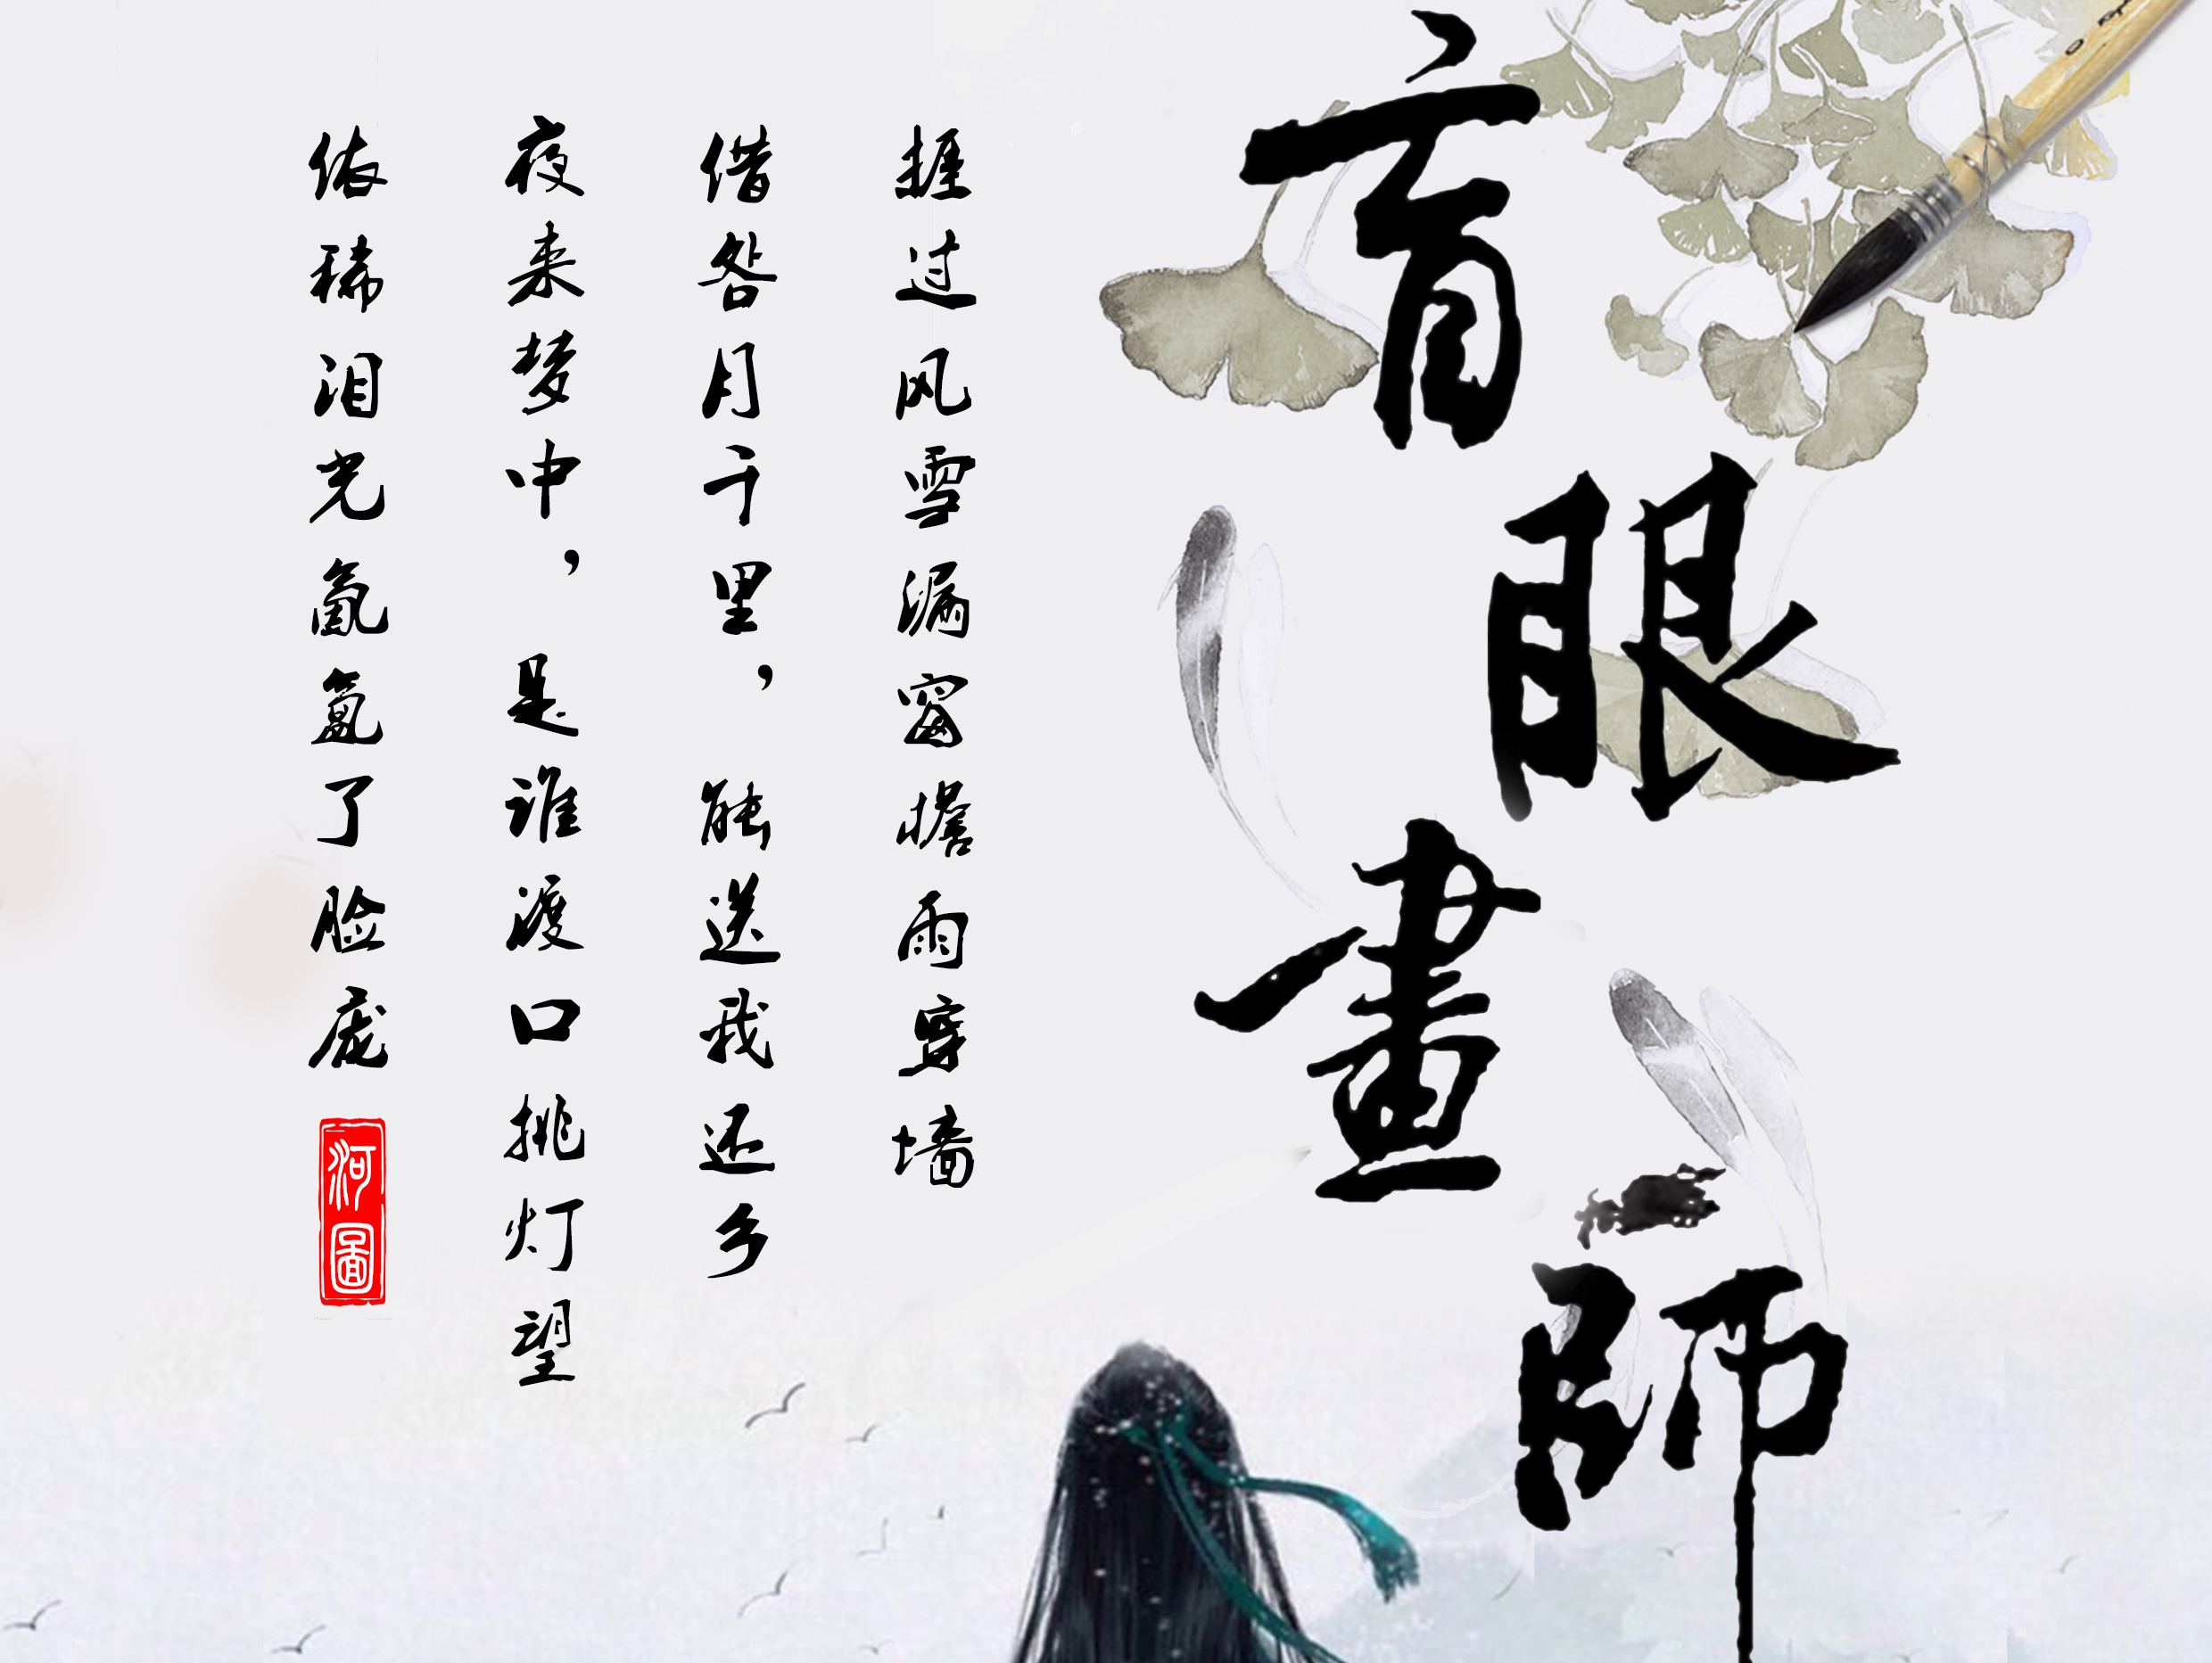 盲眼畫師
捱过风雪漏窗檐雨穿墙
借咎月千里，能送我还乡
夜来梦中，是谁渡口挑灯望
依稀泪光氤氲了脸庞
河圖